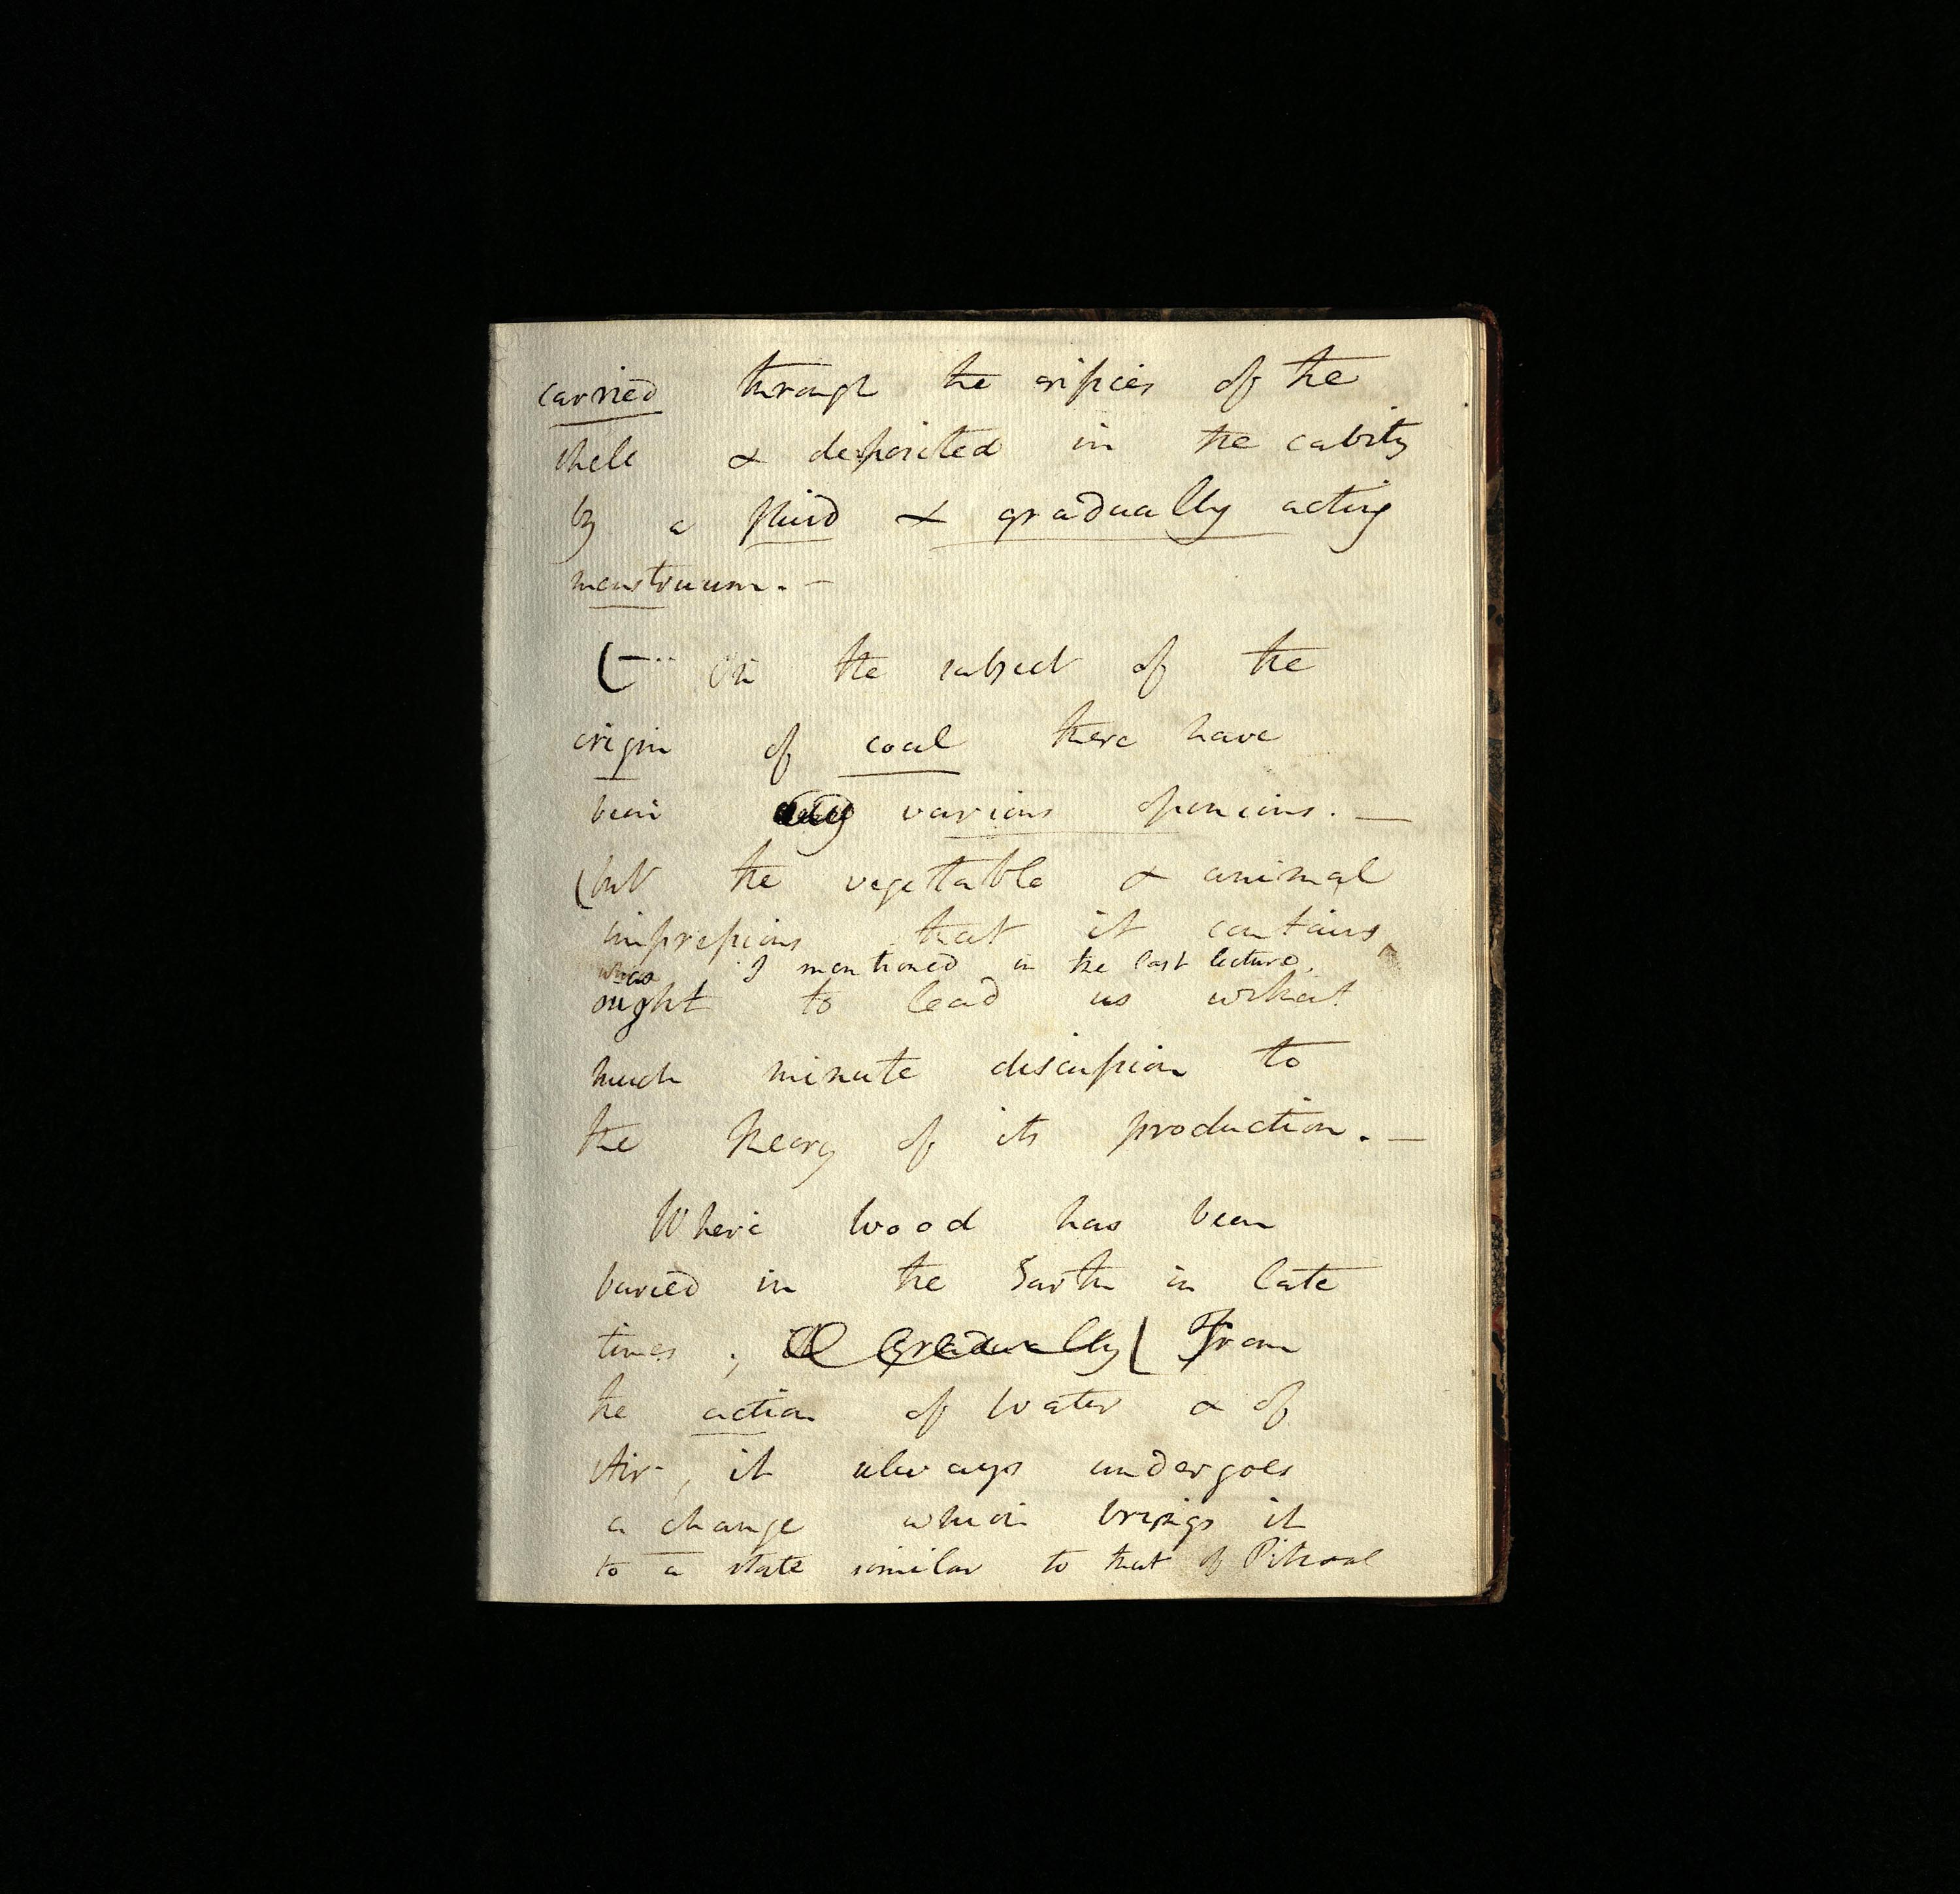 carried through the orifices of the
shell & deposited in the cavity
by a fluid & gradually acting
menstruum. –
(–·· On the subject of the
origin of coal there have
been various opinions. —
(but the vegetable & animal
impressions that it contains,
I mentioned in the last lecture.
ought to lead us without
much minute discussion to
the theory of its production. —
Where Wood has been
buried in the Earth in late
times ; it gradually ( From
the action of Water & of
Air, it always undergoes
a change which brings it
to a state similar to that of Pitcoal